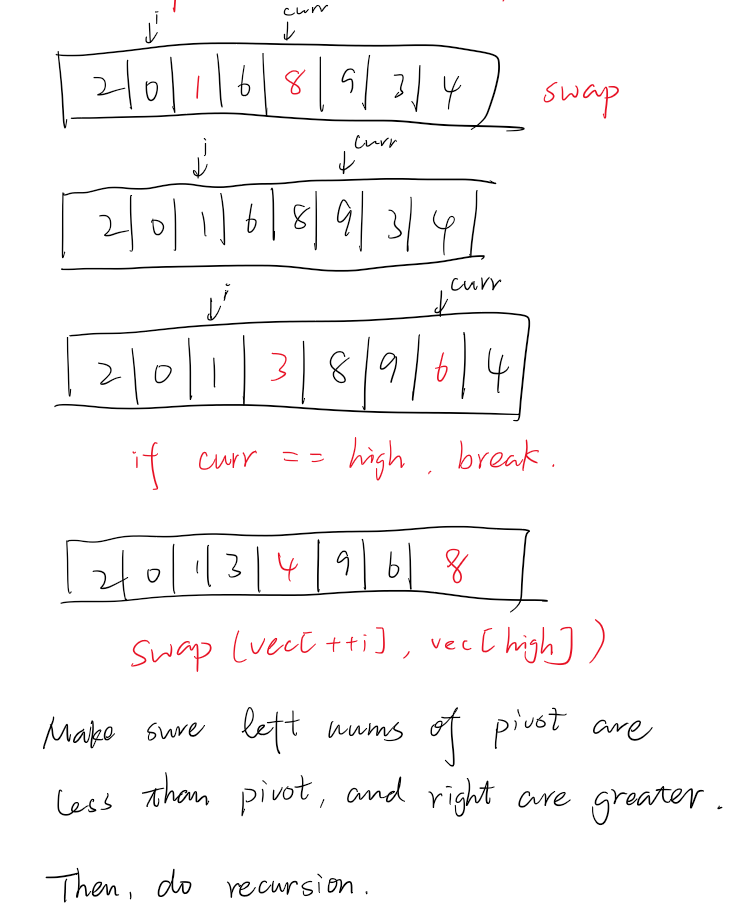 i curr
2 0 1 6 8 9 3 4 swap
i curr
2 0 1 6 8 9 3 4
i curr
2 0 1 3 8 9 6 4
if curr == high, break.
2 0 1 3 4 9 6 8
swap (vec[++i], vec[high])
Make sure left nums of pivot are
less than pivot, and right are greater.
Then, do recursion.